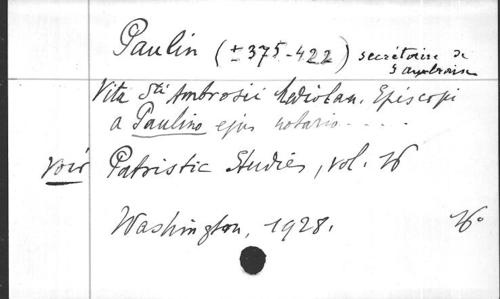 Paulin (±375-422) secrétaire de
S. Ambroise
Vita Sti Ambrosii Mediolan. Episcopi
a Paulino ejus notario.....
voir Patristic Studies, vol. 16
Washington, 1928. 16°